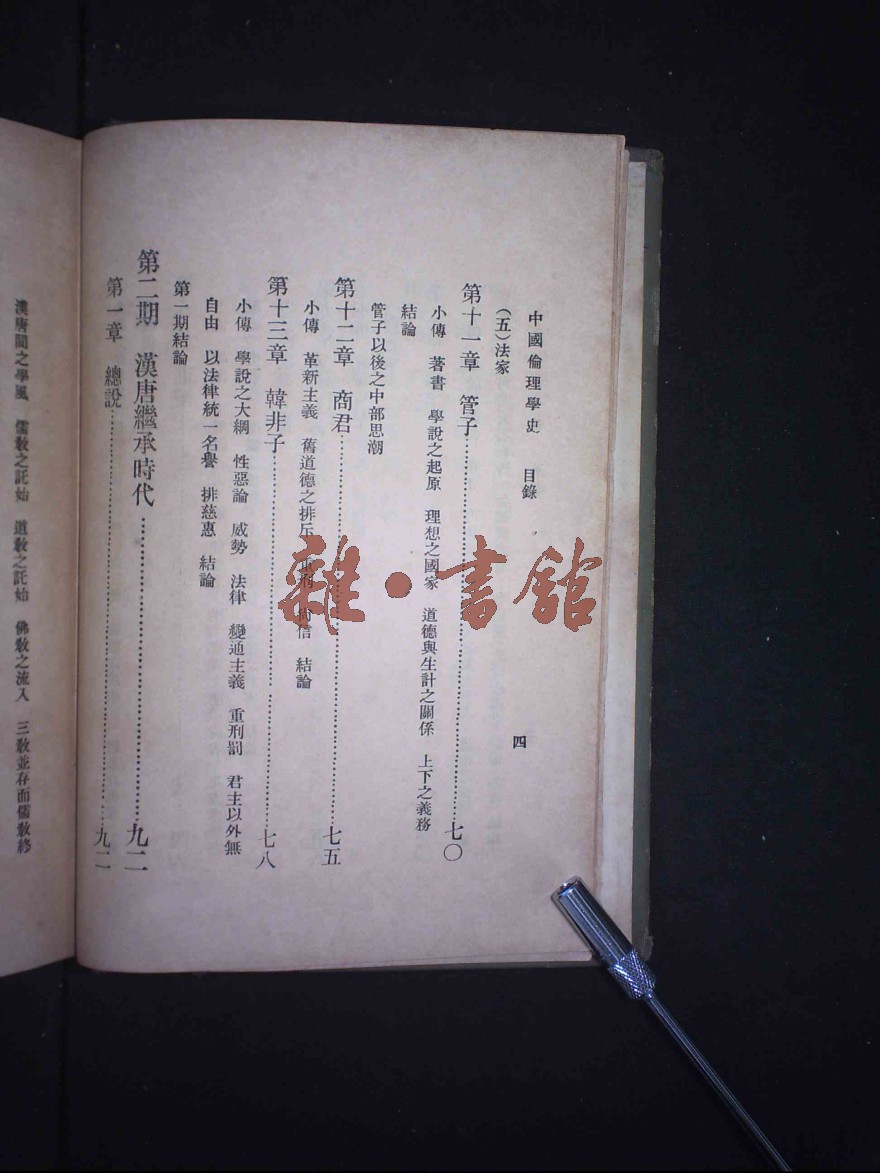 中國倫理學史 目錄 四
(五)法家
第十一章 管子……七〇
小傳 著書 學說之起原 理想之國家 道德與生計之關係 上下之義務
結論
管子以後之中部思潮
第十二章 商君……七五
小傳 革新主義 舊道德之排斥 重刑 尚信 結論
第十三章 韓非子……七八
小傳 學說之大綱 性惡論 威勢 法律 變通主義 重刑罰 君主以外無
自由 以法律統一名譽 排慈惠 結論
第一期結論
第二期 漢唐繼承時代……九二
第一章 總說……九二
漢唐間之學風 儒教之託始 道教之託始 佛教之流入 三教並存而儒教終
雜·書館